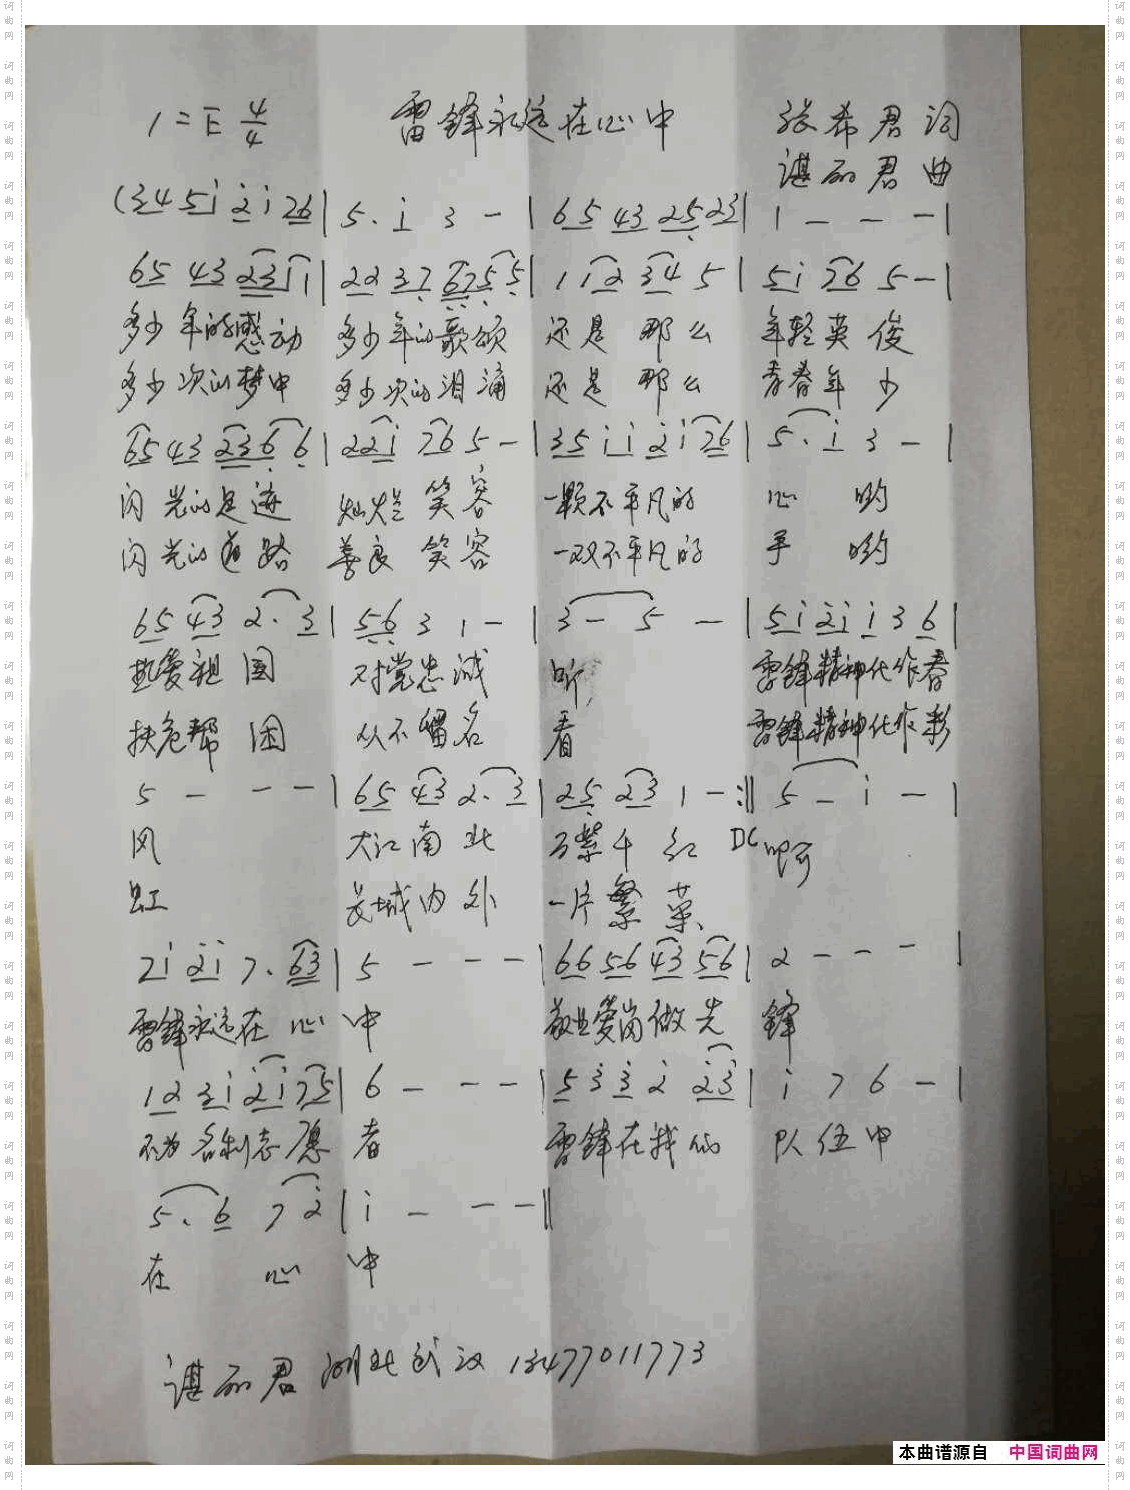 1=E 4/4 雷锋永远在心中 张希君词
谌丽君曲
(3451̇ 2̇1̇26| 5. 1̇ 3 - |65 43 2523| 1 - - - |
65 43 2311| 22 37 6755| 112 34 5 |51̇ 76 5 - |
多少年的感动 多少年的歌颂 还是那么 年轻英俊
多少次的梦中 多少次的泪涌 还是那么 青春年少
65 43 2366| 221̇ 76 5 - |351̇1̇2̇1̇76| 5. 1̇ 3 - |
闪光的足迹 灿烂笑容 一颗不平凡的 心 哟
闪光的道路 善良笑容 一双不平凡的 手 哟
65 43 2. 3| 56 3 1 - | 3 - 5 - |51̇2̇1̇1̇ 3 6|
热爱祖国 对党忠诚 听, 雷锋精神化作春
扶危帮困 从不留名 看 雷锋精神化作彩
5 - - - | 65 43 2. 3| 25 23 1 - :‖ 5 - 1̇ - |
风 大江南北 万紫千红 DC 啊
虹 长城内外 一片繁荣
71̇ 2̇1̇ 7. 63| 5 - - - |66 56 43 56| 2 - - - |
雷锋永远在心中 敬业爱岗做先锋
12 31̇ 2̇1̇75| 6 - - - |53̇ 3̇ 2̇ 2̇3̇| 1̇ 7 6 - |
不为名利志愿者 雷锋在我的 队伍中
5. 6 7 2̇|1̇ - - - ‖
在 心 中
谌丽君 湖北武汉 13477011773
本曲谱源自 中国词曲网